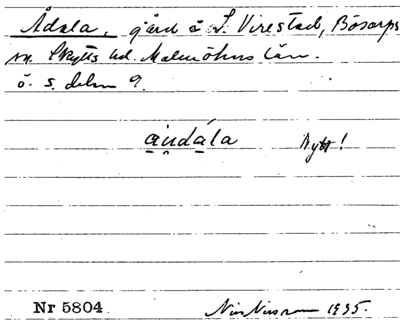 Ådala, gård å L. Virestad, Bösarps
sn. Skytts hd. Malmöhus län.
ö. s. delen 9.
a̱u̯dá̱la Nytt!
Nr 5804. Nils Nilsson 1935.